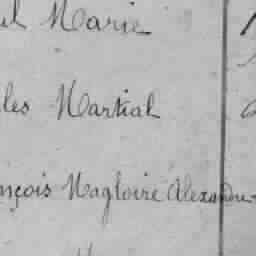 el Marie
les Martial
nçois Magloire Alexandre